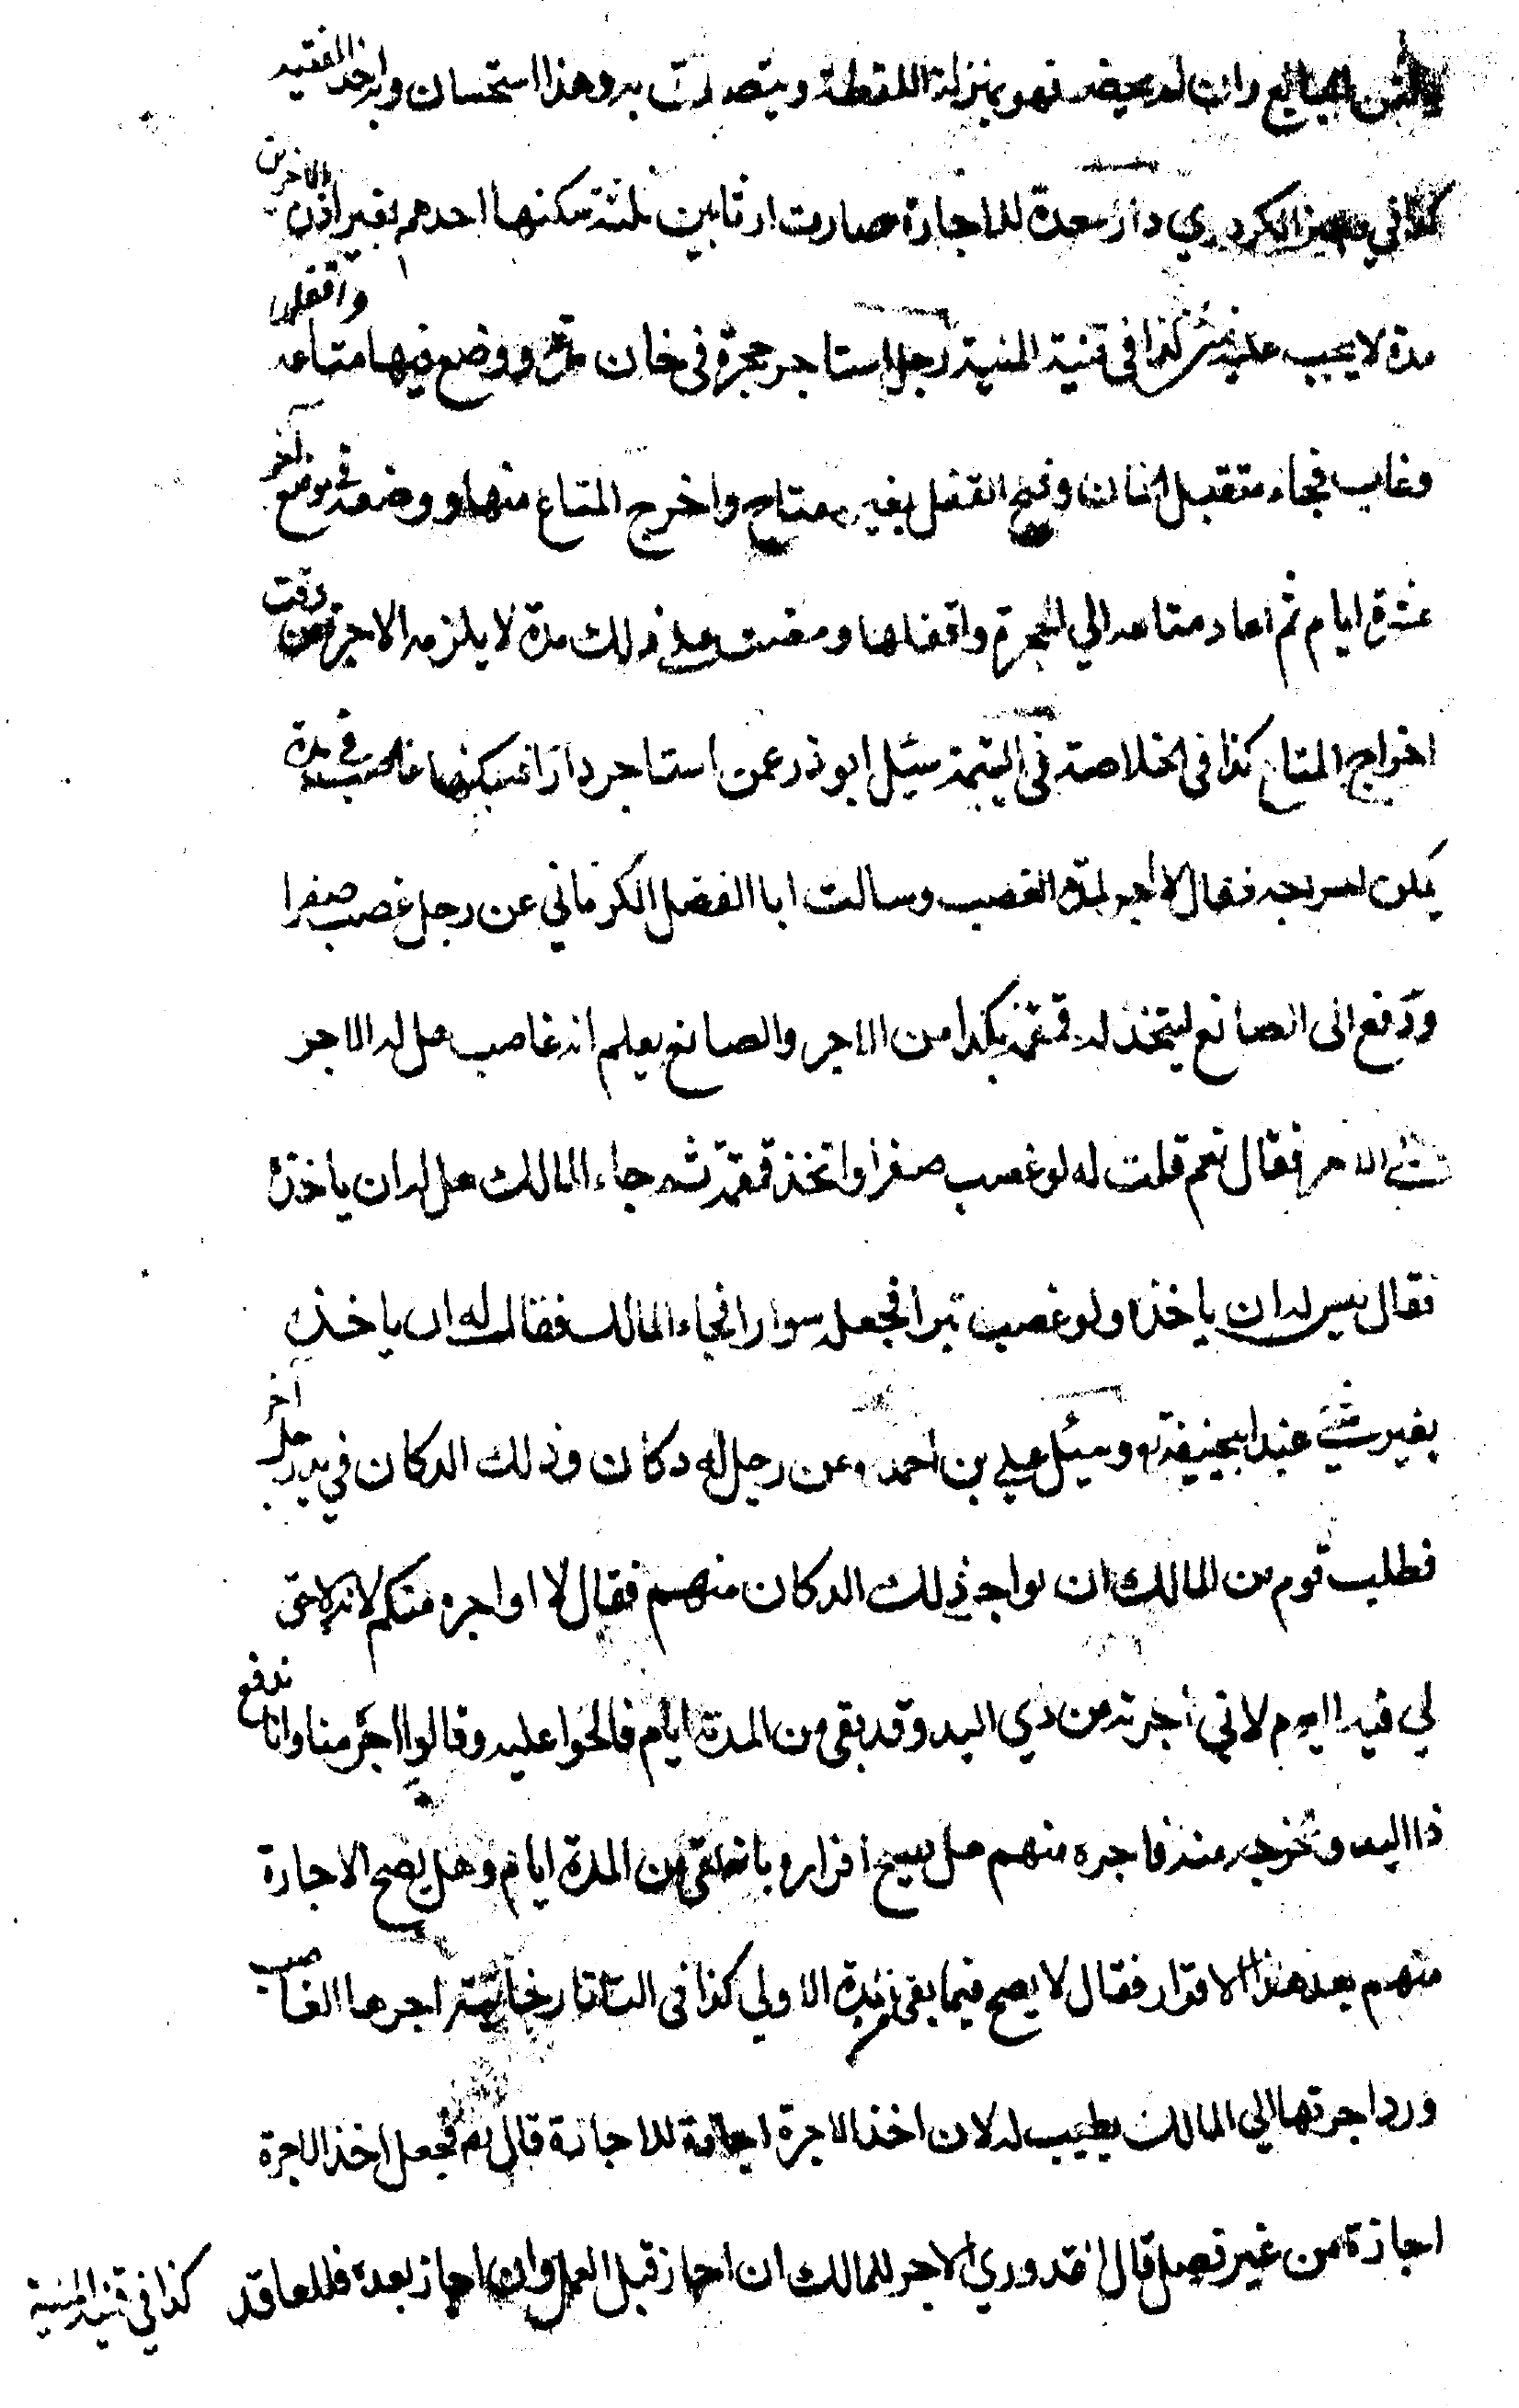 الثمن البائع وان لم يحضر فهو بمنزلة اللقطة ويتصدق به وهذا استحسان وبه اخذ الفقيه
كذا في وجيز الكردري دار معدة للاجارة صارت ارثا بين ثلثة سكنها احدهم بغير اذن الاخرين
مدة لا يجب عليه شئ كذا في قنية المنية رجل استاجر حجرة في خان ووضع فيها متاعه واقفلها
وغاب فجاء متقبل الخان وفتح القفل بغير مفتاح واخرج المتاع منها ووضعه في موضع آخر
عشرة ايام ثم اعاد متاعه الي الحجرة واقفلها ومضت على ذلك مدة لا يلزمه الاجر من وقت
اخراج المتاع كذا في الخلاصة في اليتيمة سئل ابو ذر عمن استاجر دارا فسكنها غاصب في مدة
يمكن اخراجه فقال لا اجر لمدة الغصب وسالت ابا الفضل الكرماني عن رجل غصب صفرا
ودفع الى الصانع ليتخذ له قمقمة بكذا من الاجر والصانع يعلم انه غاصب هل له الاجر
فقال نعم قلت له لو غصب صفرا واتخذ قمقمة ثم جاء المالك هل له ان ياخذه
فقال ليس له ان ياخذه ولو غصب تبرا فجعله سوارا فجاء المالك فقال له ان ياخذه
بغير شئ عند ابيحنيفة رح وسئل علي بن احمد عن رجل له دكان وذلك الدكان في يد رجل آخر
فطلب قوم من المالك ان يواجر ذلك الدكان منهم فقال لا اواجره منكم لانه لا حق
لي فيه اليوم لاني اجرته من ذي اليد وقد بقي من المدة ايام فالحوا عليه وقالوا اجر منا وانا ندفع
ذا اليد ونخرجه منه فاجره منهم هل يصح اقراره بانه بقي من المدة ايام وهل يصح الاجارة
منهم بعد هذا الاقرار فقال لا يصح فيما بقي من مدة الاولي كذا في التاتارخانية اجرها الغاصب
ورد اجرتها الي المالك يطيب له لان اخذ الاجرة اجازة للاجارة قال رح فجعل اخذ الاجرة
اجازة من غير فصل قال القدوري الاجر للمالك ان اجاز قبل العمل وان اجاز بعده فللعاقد كذا في قنية المنية